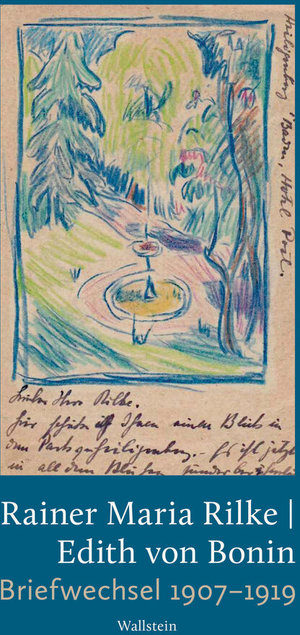 Heiligenberg Baden, Hotel Post.
Lieber Herr Rilke.
hier schick ich Ihnen einen Blick in
den Park v. Heiligenberg. Es ist jetzt
in all dem Blühen
Rainer Maria Rilke |
Edith von Bonin
Briefwechsel 1907–1919
Wallstein